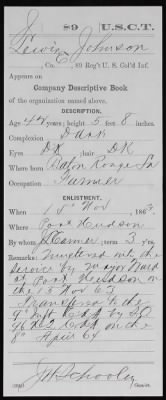 J 89 U.S.C.T.
Lewis Johnson
Co. , 89 Reg't U. S. Col'd Inf.
Appears on
Company Descriptive Book
of the organization named above.
DESCRIPTION.
Age 44 years; height 5 feet 8 inches.
Complexion Dark
Eyes DK ; hair DK
Where born Baton Rouge La
Occupation Farmer
ENLISTMENT.
When 18 Nov , 1863.
Where Port Hudson
By term 3 y'rs.
Remarks: Mustered into the
service by Major
at Port Hudson on
the 18 Nov 63
Transferred to the
by S.O.
on the
8" April 64
J H Schooley
Copyist.